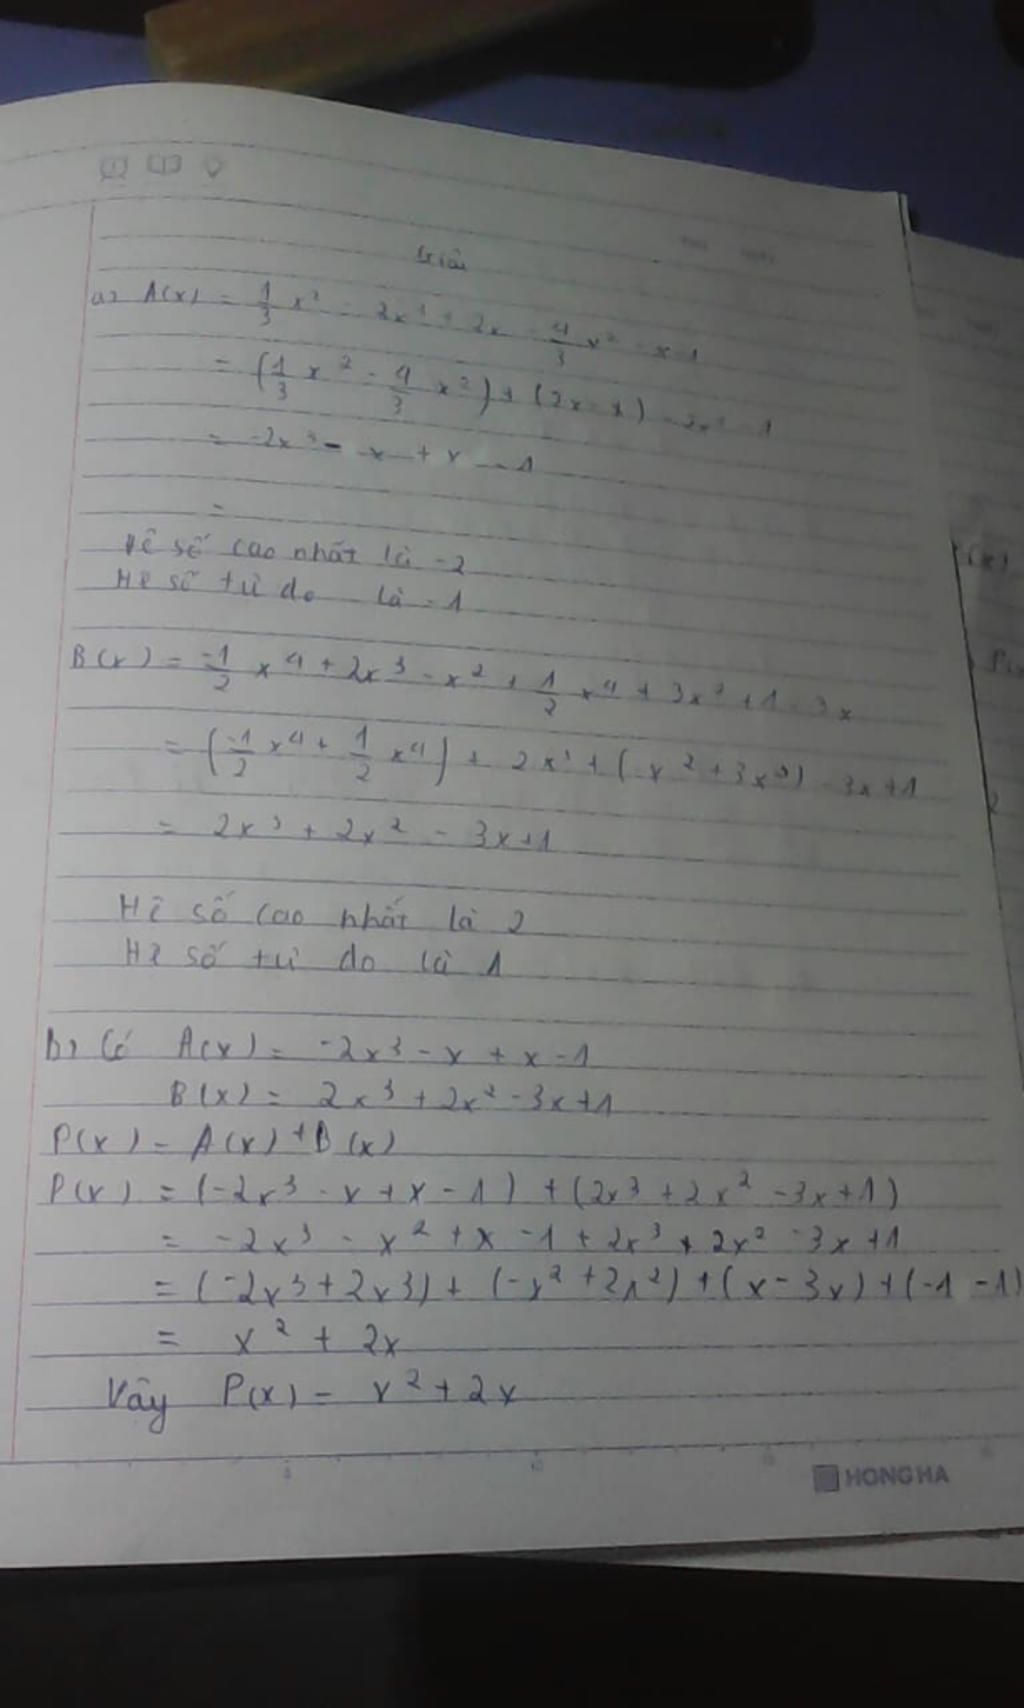 Giải
a) A(x) = 1/3 x² - 2x³ + 2x - 4/3 x² - x - 1
= (1/3 x² - 4/3 x²) + (2x - x) - 2x³ - 1
= -2x³ - x + x - 1
=
Hê số cao nhất là -2
Hê số tử do là -1
B(x) = -1/2 x⁴ + 2x³ - x² + 1/2 x⁴ + 3x² + 1 - 3x
= (-1/2 x⁴ + 1/2 x⁴) + 2x³ + (-x² + 3x²) - 3x + 1
= 2x³ + 2x² - 3x + 1
Hê số cao nhất là 2
Hê số tư do là 1
b) Có A(x) = -2x³ - x + x - 1
B(x) = 2x³ + 2x² - 3x + 1
P(x) = A(x) + B(x)
P(x) = (-2x³ - x + x - 1) + (2x³ + 2x² - 3x + 1)
= -2x³ - x² + x - 1 + 2x³ + 2x² - 3x + 1
= (-2x³ + 2x3) + (-x² + 2x²) + (x - 3x) + (-1 - 1)
= x² + 2x
Vây P(x) = x² + 2x
HONG HA